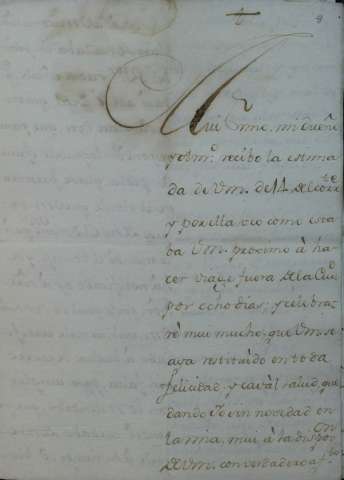 Mui S.r mio, mi Dueño
y Am.o recibo la estima
da de Vm. de 14 del corr.te
y por ella veo como esta
ba Vm. proximo à ha
cer viage fuera de la Ciu.d
por ocho dias; y celebra
ré mui mucho, que Vm. se
aya restituido en toda
felicidad, y caval salud, que
dando Yo sin novedad en
la mia, mui à la dispos.on
de Vm. con verdadero af.to